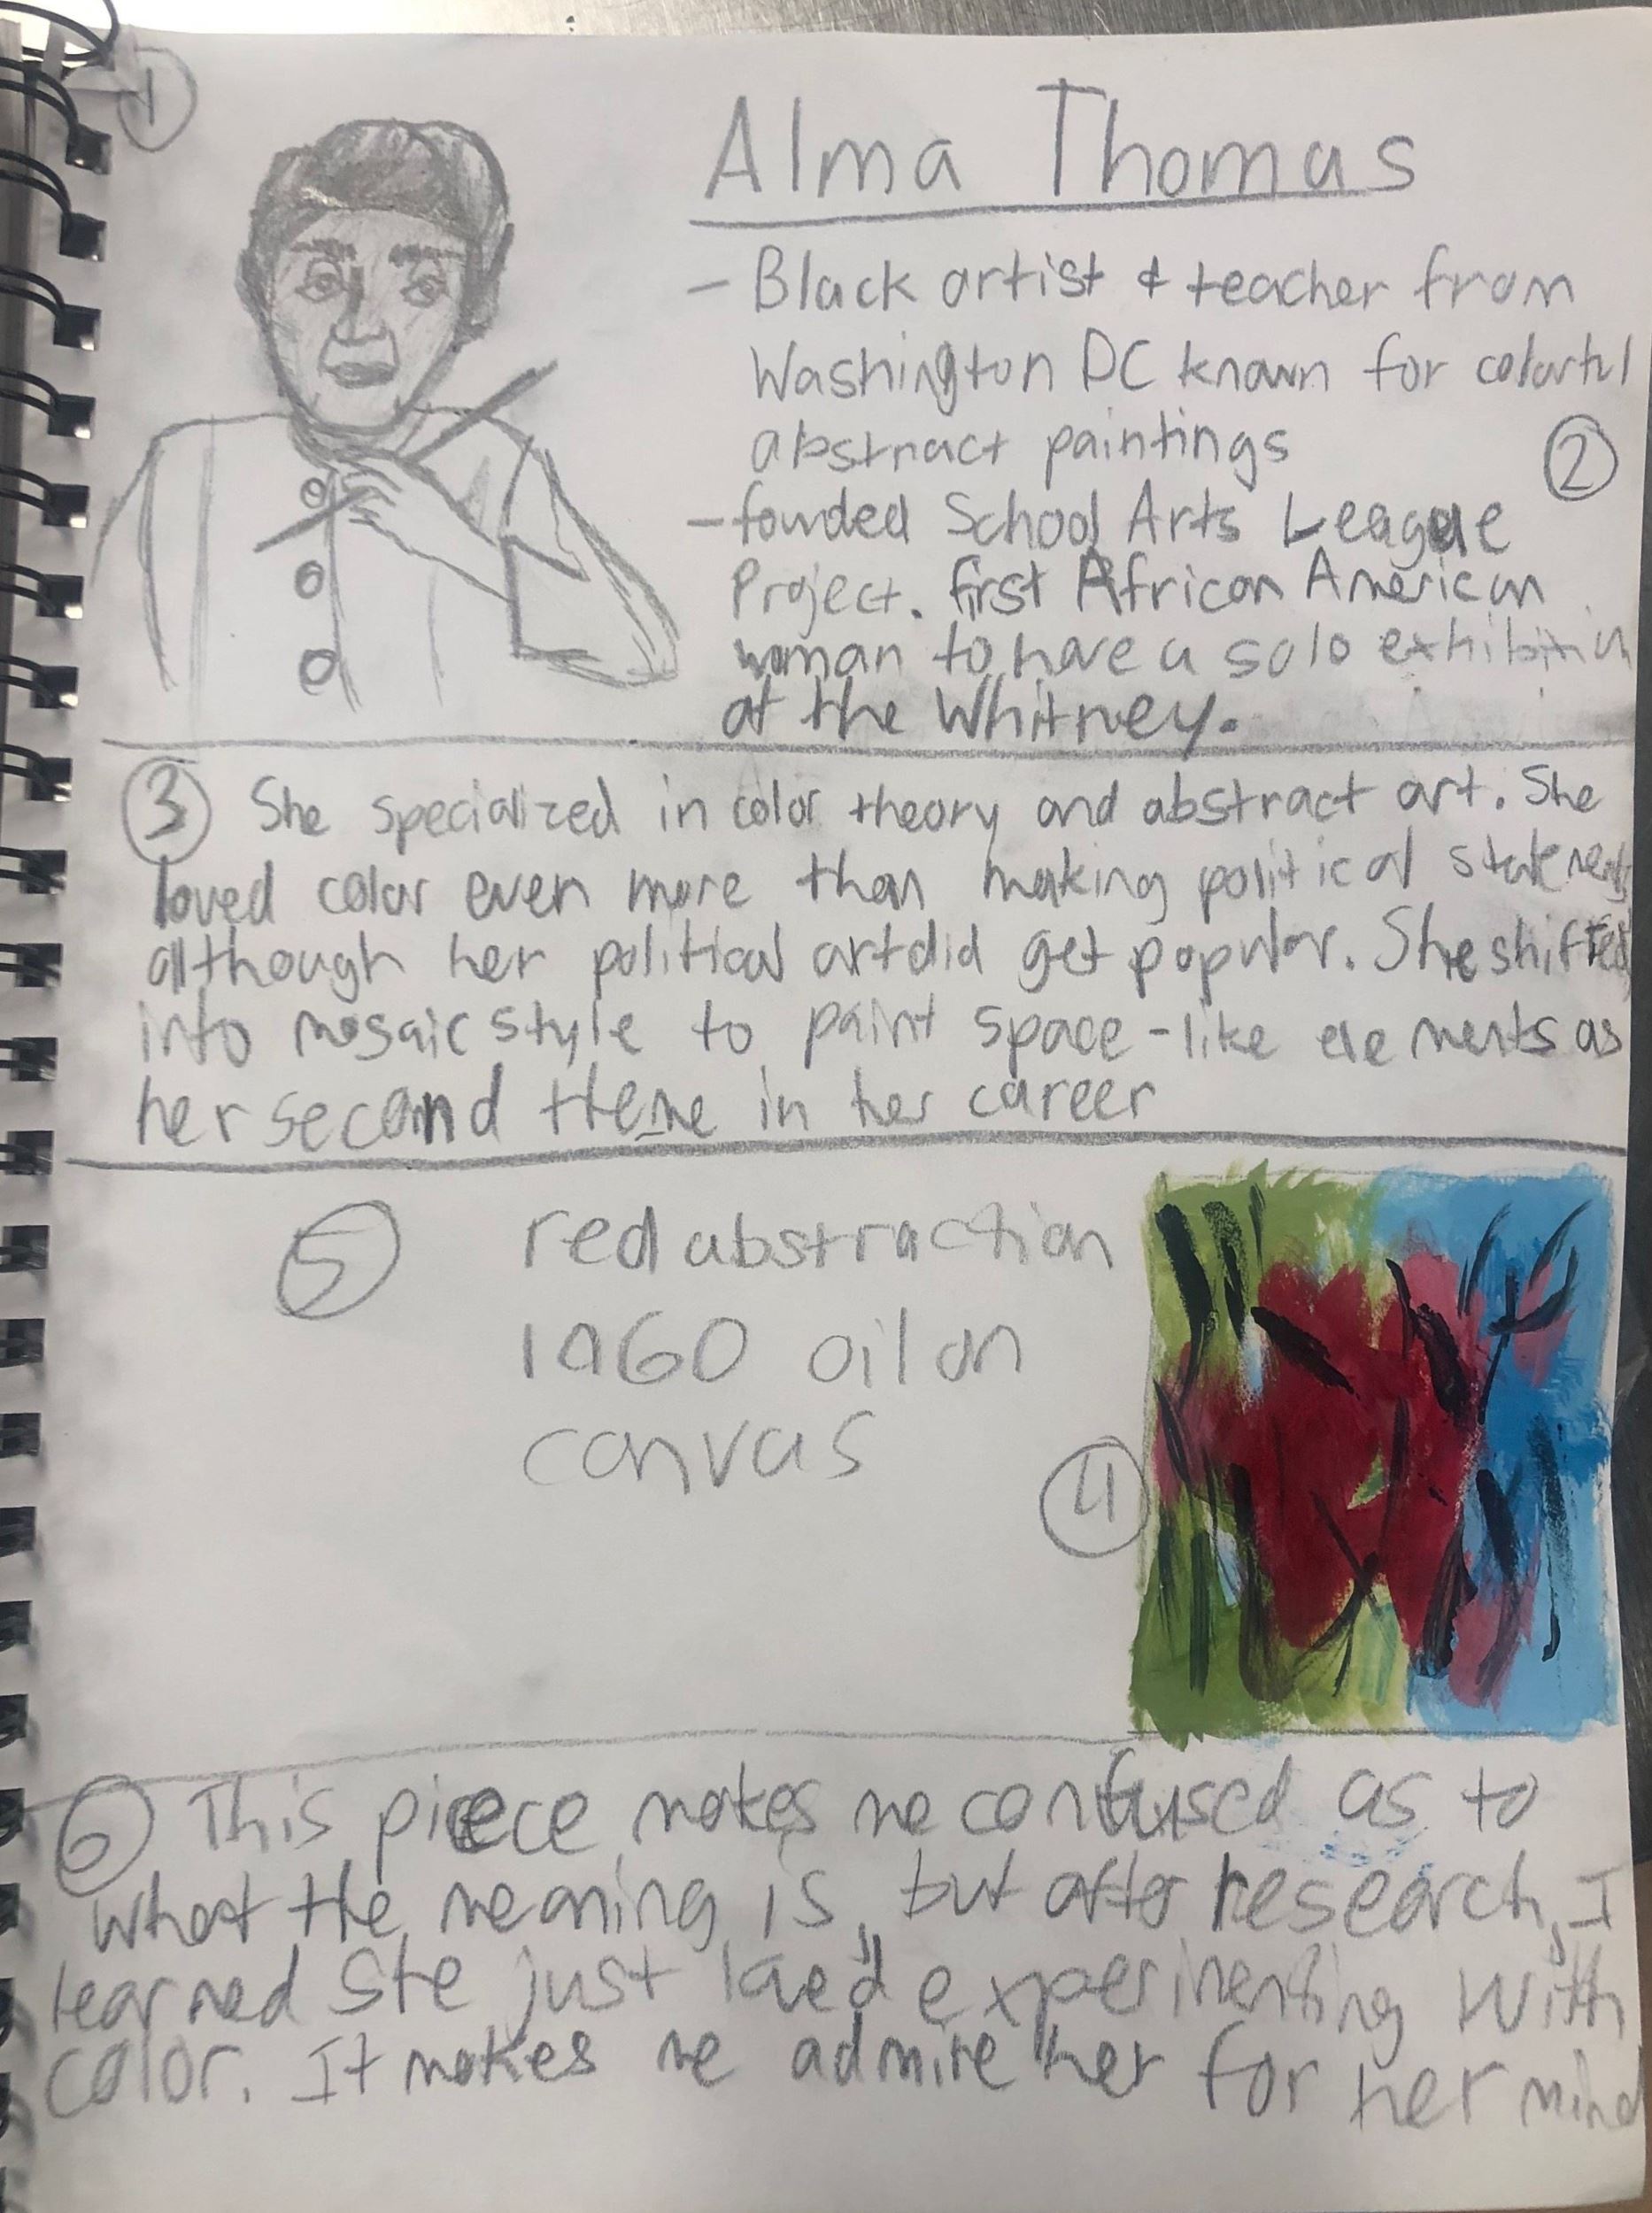 1
Alma Thomas
- Black artist & teacher from
Washington DC known for colorful
abstract paintings
2
- founded School Arts League
Project. first African American
woman to have a solo exhibition
at the Whitney.
3 She specialized in color theory and abstract art. She
loved color even more than making political statements
although her political art did get popular. She shifted
into mosaic style to paint space-like elements as
her second theme in her career
5 red abstraction
1960 oil on
canvas
4
6 This piece makes me confused as to
what the meaning is, but after research, I
learned she just loved experimenting with
color. It makes me admire her for her mind